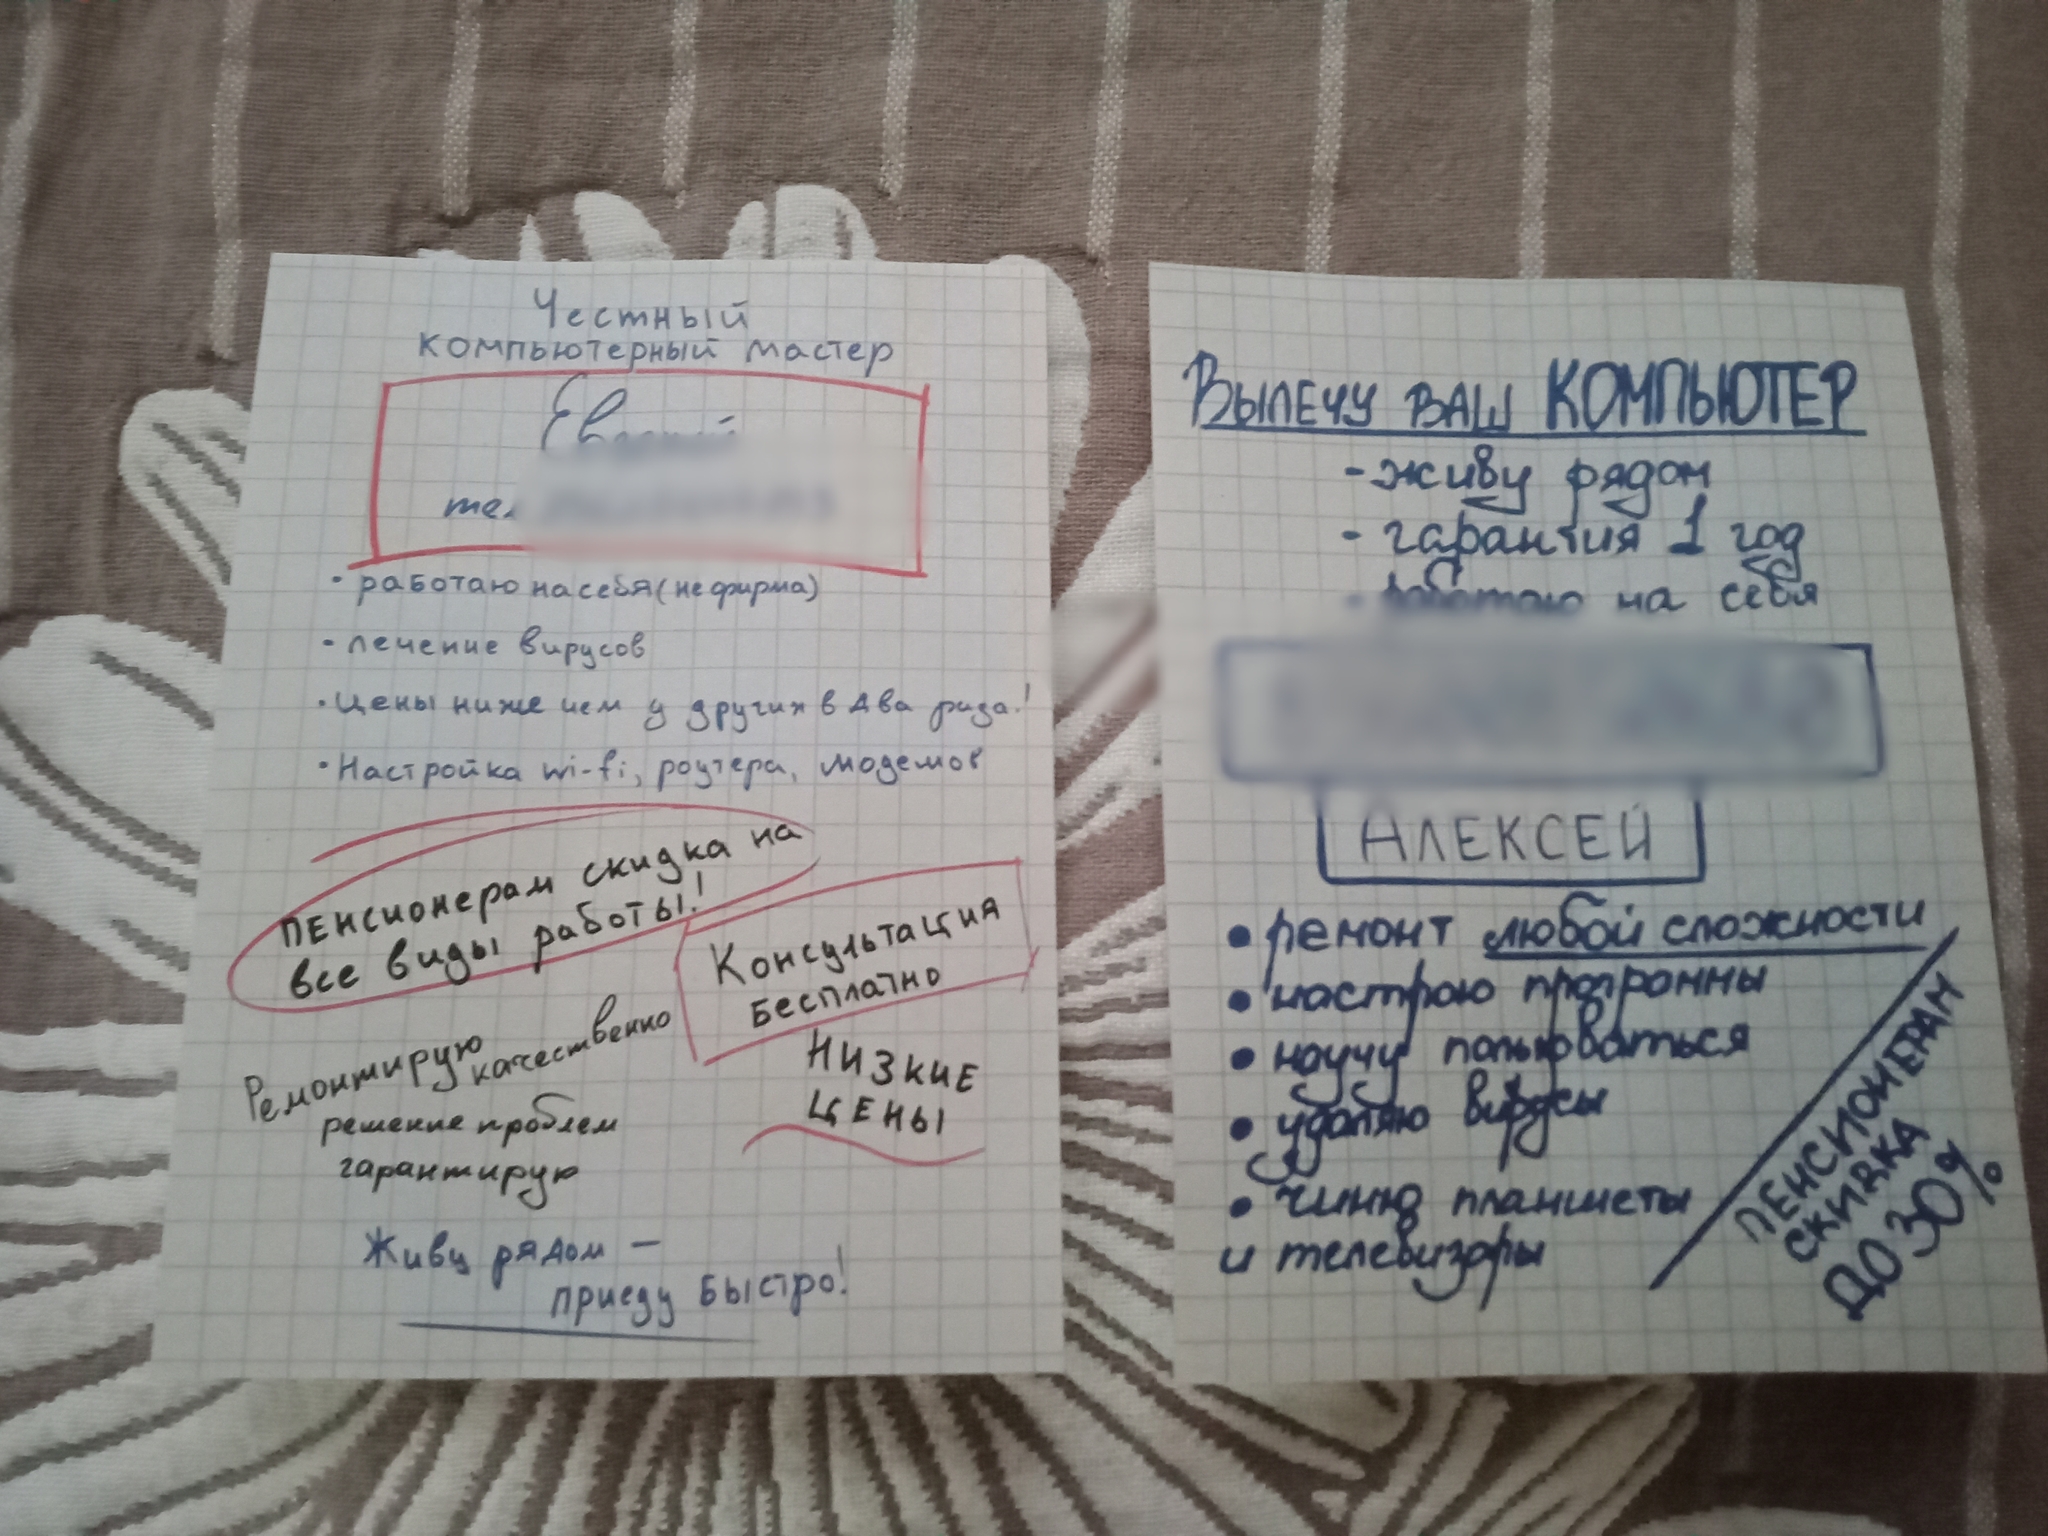 Честный
компьютерный мастер
тел
• работаю на себя (не фирма)
- лечение вирусов
• Цены ниже чем у других в два раза!
• Настройка wi-fi, роутера, модемов
Пенсионерам скидка на
все виды работы!
Консультация
бесплатно
Ремонтирую
качественно
решение проблем
гарантирую
НИЗКИЕ
ЦЕНЫ
Живу рядом —
приеду быстро!
Вылечу ваш КОМПЬЮТЕР
- живу рядом
- гарантия 1 год
- работаю на себя
АЛЕКСЕЙ
• ремонт любой сложности
• настрою программы
• научу пользоваться
• удаляю вирусы
• чиню планшеты
и телевизоры
ПЕНСИОНЕРАМ
СКИДКА
ДО 30%